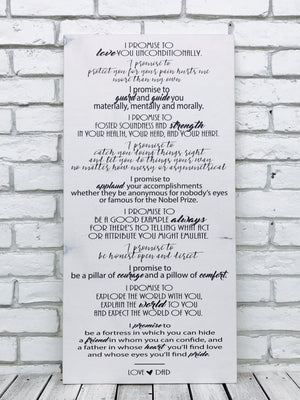 I PROMISE TO
love YOU UNCONDITIONALLY.
I promise to
protect you for your pain hurts me
more than my own
I promise to
guard and guide you
materially, mentally and morally.
I PROMISE TO
FOSTER SOUNDNESS AND strength
IN YOUR HEALTH, YOUR HEAD, AND YOUR HEART.
I promise to
catch you doing things right
and let you do things your way
no matter how messy or asymmetrical
I promise to
applaud your accomplishments
whether they be anonymous for nobody's eyes
or famous for the Nobel Prize.
I PROMISE TO
BE A GOOD EXAMPLE always
FOR THERE'S NO TELLING WHAT ACT
OR ATTRIBUTE YOU MIGHT EMULATE.
I promise to
be honest open and direct
I promise to
be a pillar of courage and a pillow of comfort.
I PROMISE TO
EXPLORE THE WORLD WITH YOU,
EXPLAIN THE world TO YOU
AND EXPECT THE WORLD OF YOU.
I promise to
be a fortress in which you can hide
a friend in whom you can confide, and
a father in whose heart you'll find love
and whose eyes you'll find pride.
LOVE DAD